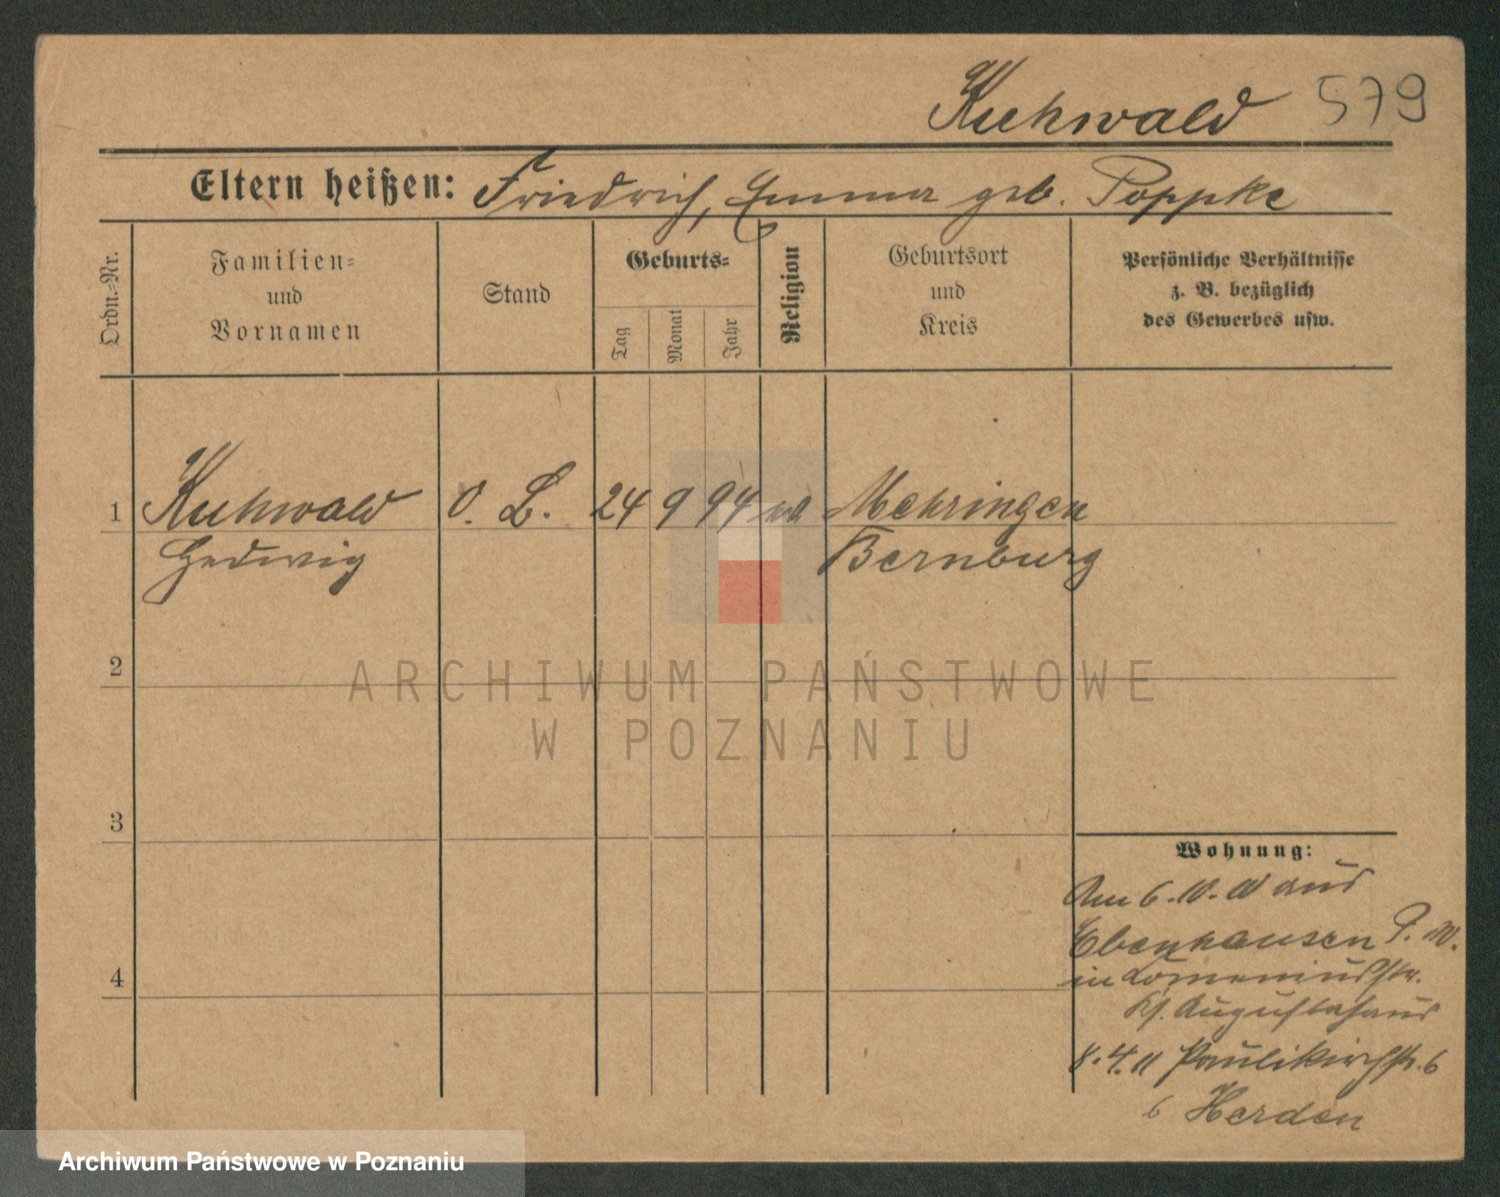 Kuhwald 579
Eltern heißen: Friedrich, Emma geb. Poppke
Ordn.-Nr.
Familien-
und
Vornamen
Stand
Geburts-
Tag
Monat
Jahr
Religion
Geburtsort
und
Kreis
Persönliche Verhältnisse
z. B. bezüglich
des Gewerbes usw.
1 Kuhwald O. L. 24 9 94 ev Mehringen
Hedwig Bernburg
2
ARCHIWUM PAŃSTWOWE
W POZNANIU
3
Wohnung:
Am 6. 10. 10 aus
Ebenhausen
in Comeniusstr.
Ks. Augustahaus
4
8.4.11 Paulikirchstr. 6
b Herden
Archiwum Państwowe w Poznaniu